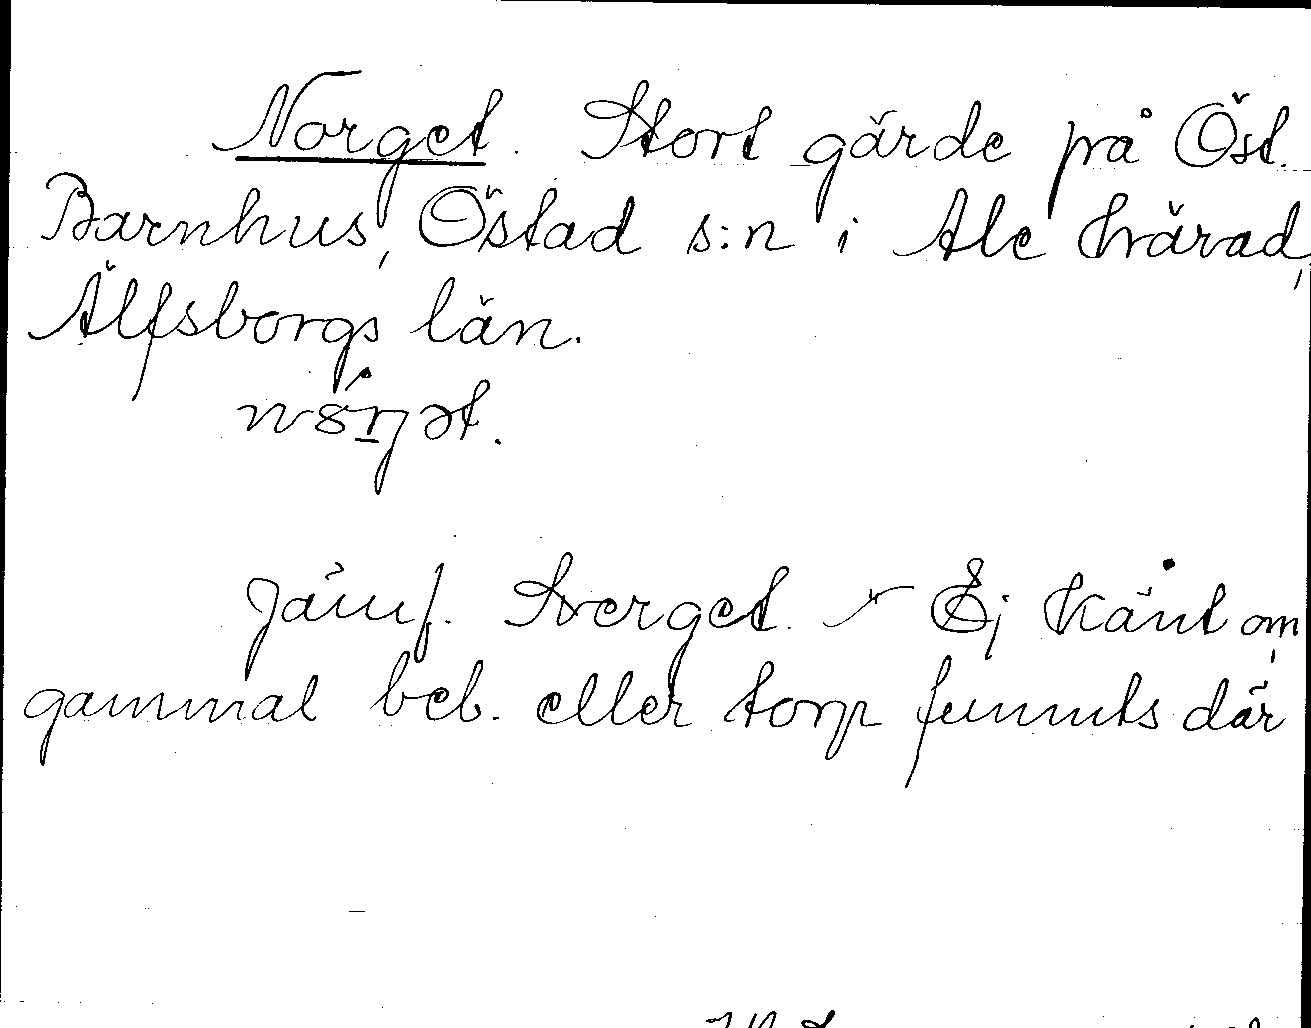 Norget. Stort gärde på Öst.
Barnhus, Östad s:n i Ale härad,
Älfsborgs län.
Jämf. Sverget. – Ej känt om
gammal beb. eller torp funnits där